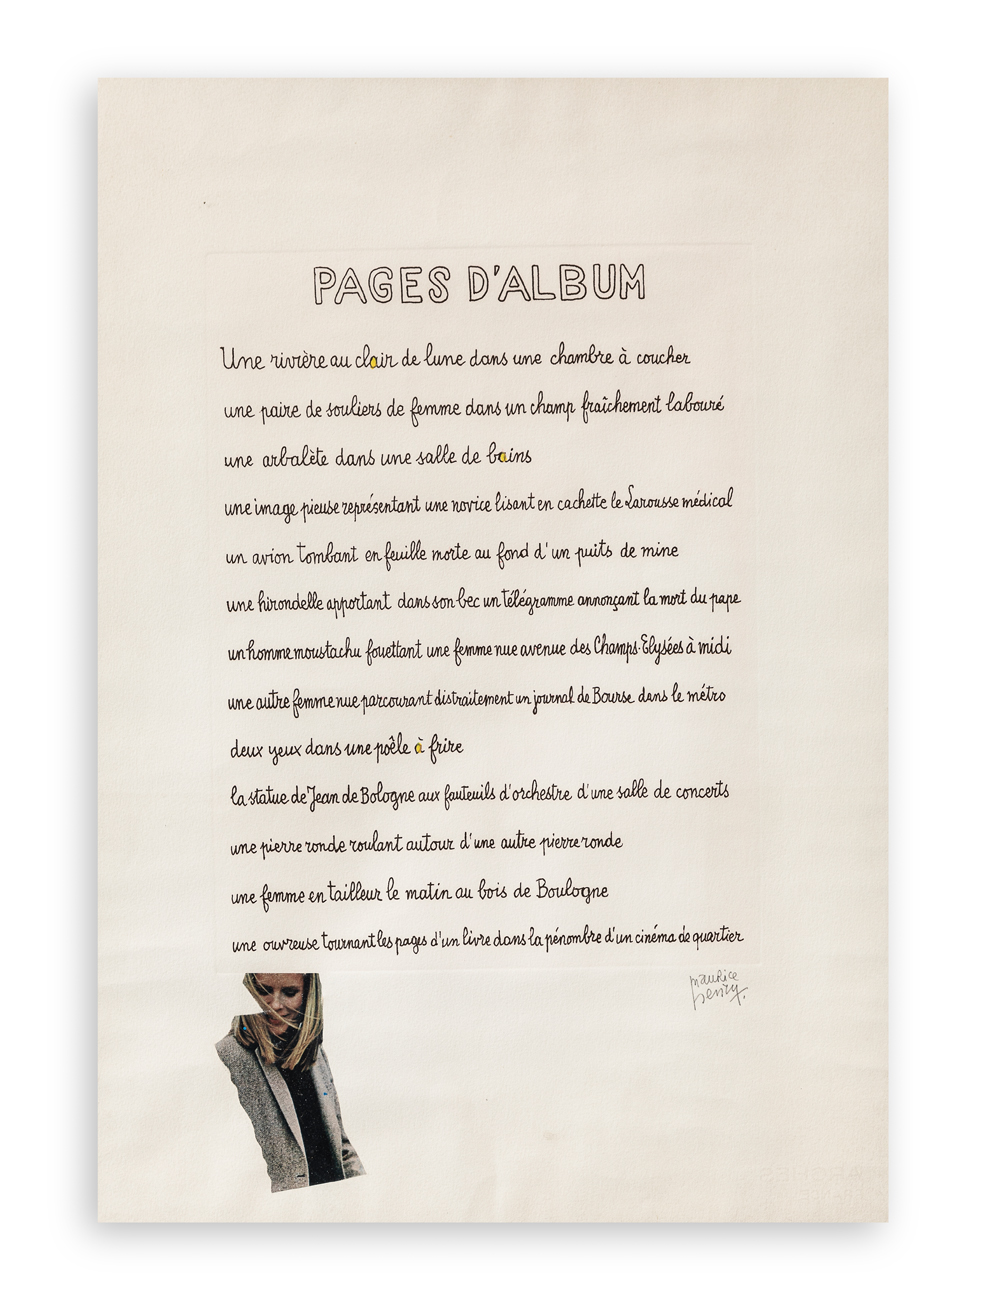 PAGES D'ALBUM
Une rivière au clair de lune dans une chambre à coucher
une paire de souliers de femme dans un champ fraîchement labouré
une arbalète dans une salle de bains
une image pieuse représentant une novice lisant en cachette le Larousse médical
un avion tombant en feuille morte au fond d'un puits de mine
une hirondelle apportant dans son bec un télégramme annonçant la mort du pape
un homme moustachu fouettant une femme nue avenue des Champs-Elysées à midi
une autre femme nue parcourant distraitement un journal de Bourse dans le métro
deux yeux dans une poêle à frire
la statue de Jean de Bologne aux fauteuils d'orchestre d'une salle de concerts
une pierre ronde roulant autour d'une autre pierre ronde
une femme en tailleur le matin au bois de Boulogne
une ouvreuse tournant les pages d'un livre dans la pénombre d'un cinéma de quartier
maurice
henry.